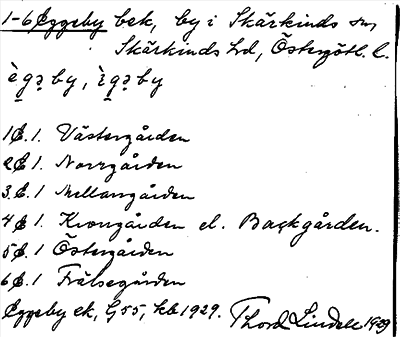 1-6 Eggeby bek, by i Skärkinds sn
Skärkinds hd, Östergötl. l.
ègəby, ìgəby
1 E. 1. Västergården
2 E. 1. Norrgården
3. E. 1 Mellangården
4 E 1. Krongården el. Backgården.
5 E. 1 Östergården
6 E. 1 Frälsegården
Eggeby ek, G55, kb 1929. Thord Lindell 1929